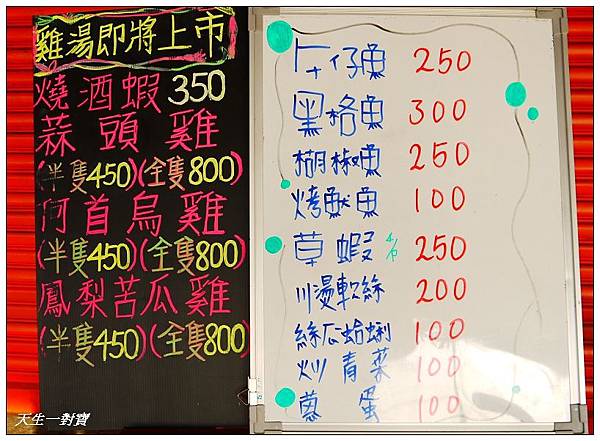 雞湯即將上市
燒酒蝦 350
蒜頭雞
(半隻450)(全隻800)
何首烏雞
(半隻450)(全隻800)
鳳梨苦瓜雞
(半隻450)(全隻800)
午仔魚 250
黑格魚 300
胡椒魚 250
烤魷魚 100
草蝦 250
川燙軟絲 200
絲瓜蛤蜊 100
炒青菜 100
蔥蛋 100
天生一對寶